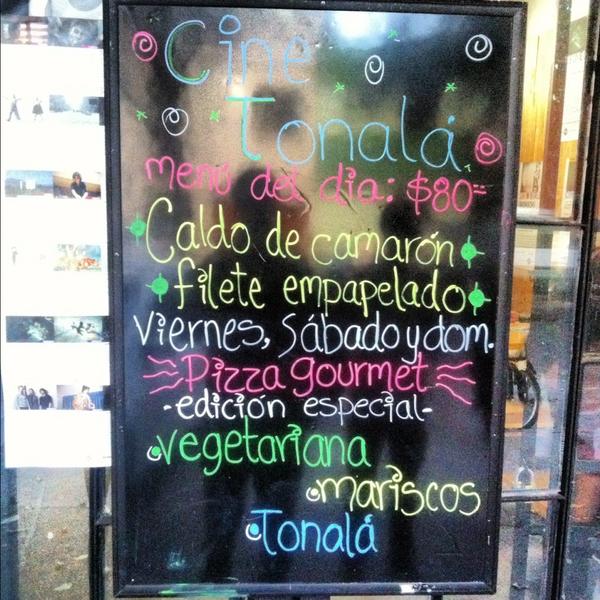 Cine
Tonalá
menú del dia: $80=
Caldo de camarón
filete empapelado
Viernes, Sábado y dom.
Pizza gourmet
-edición especial-
vegetariana
mariscos
Tonalá